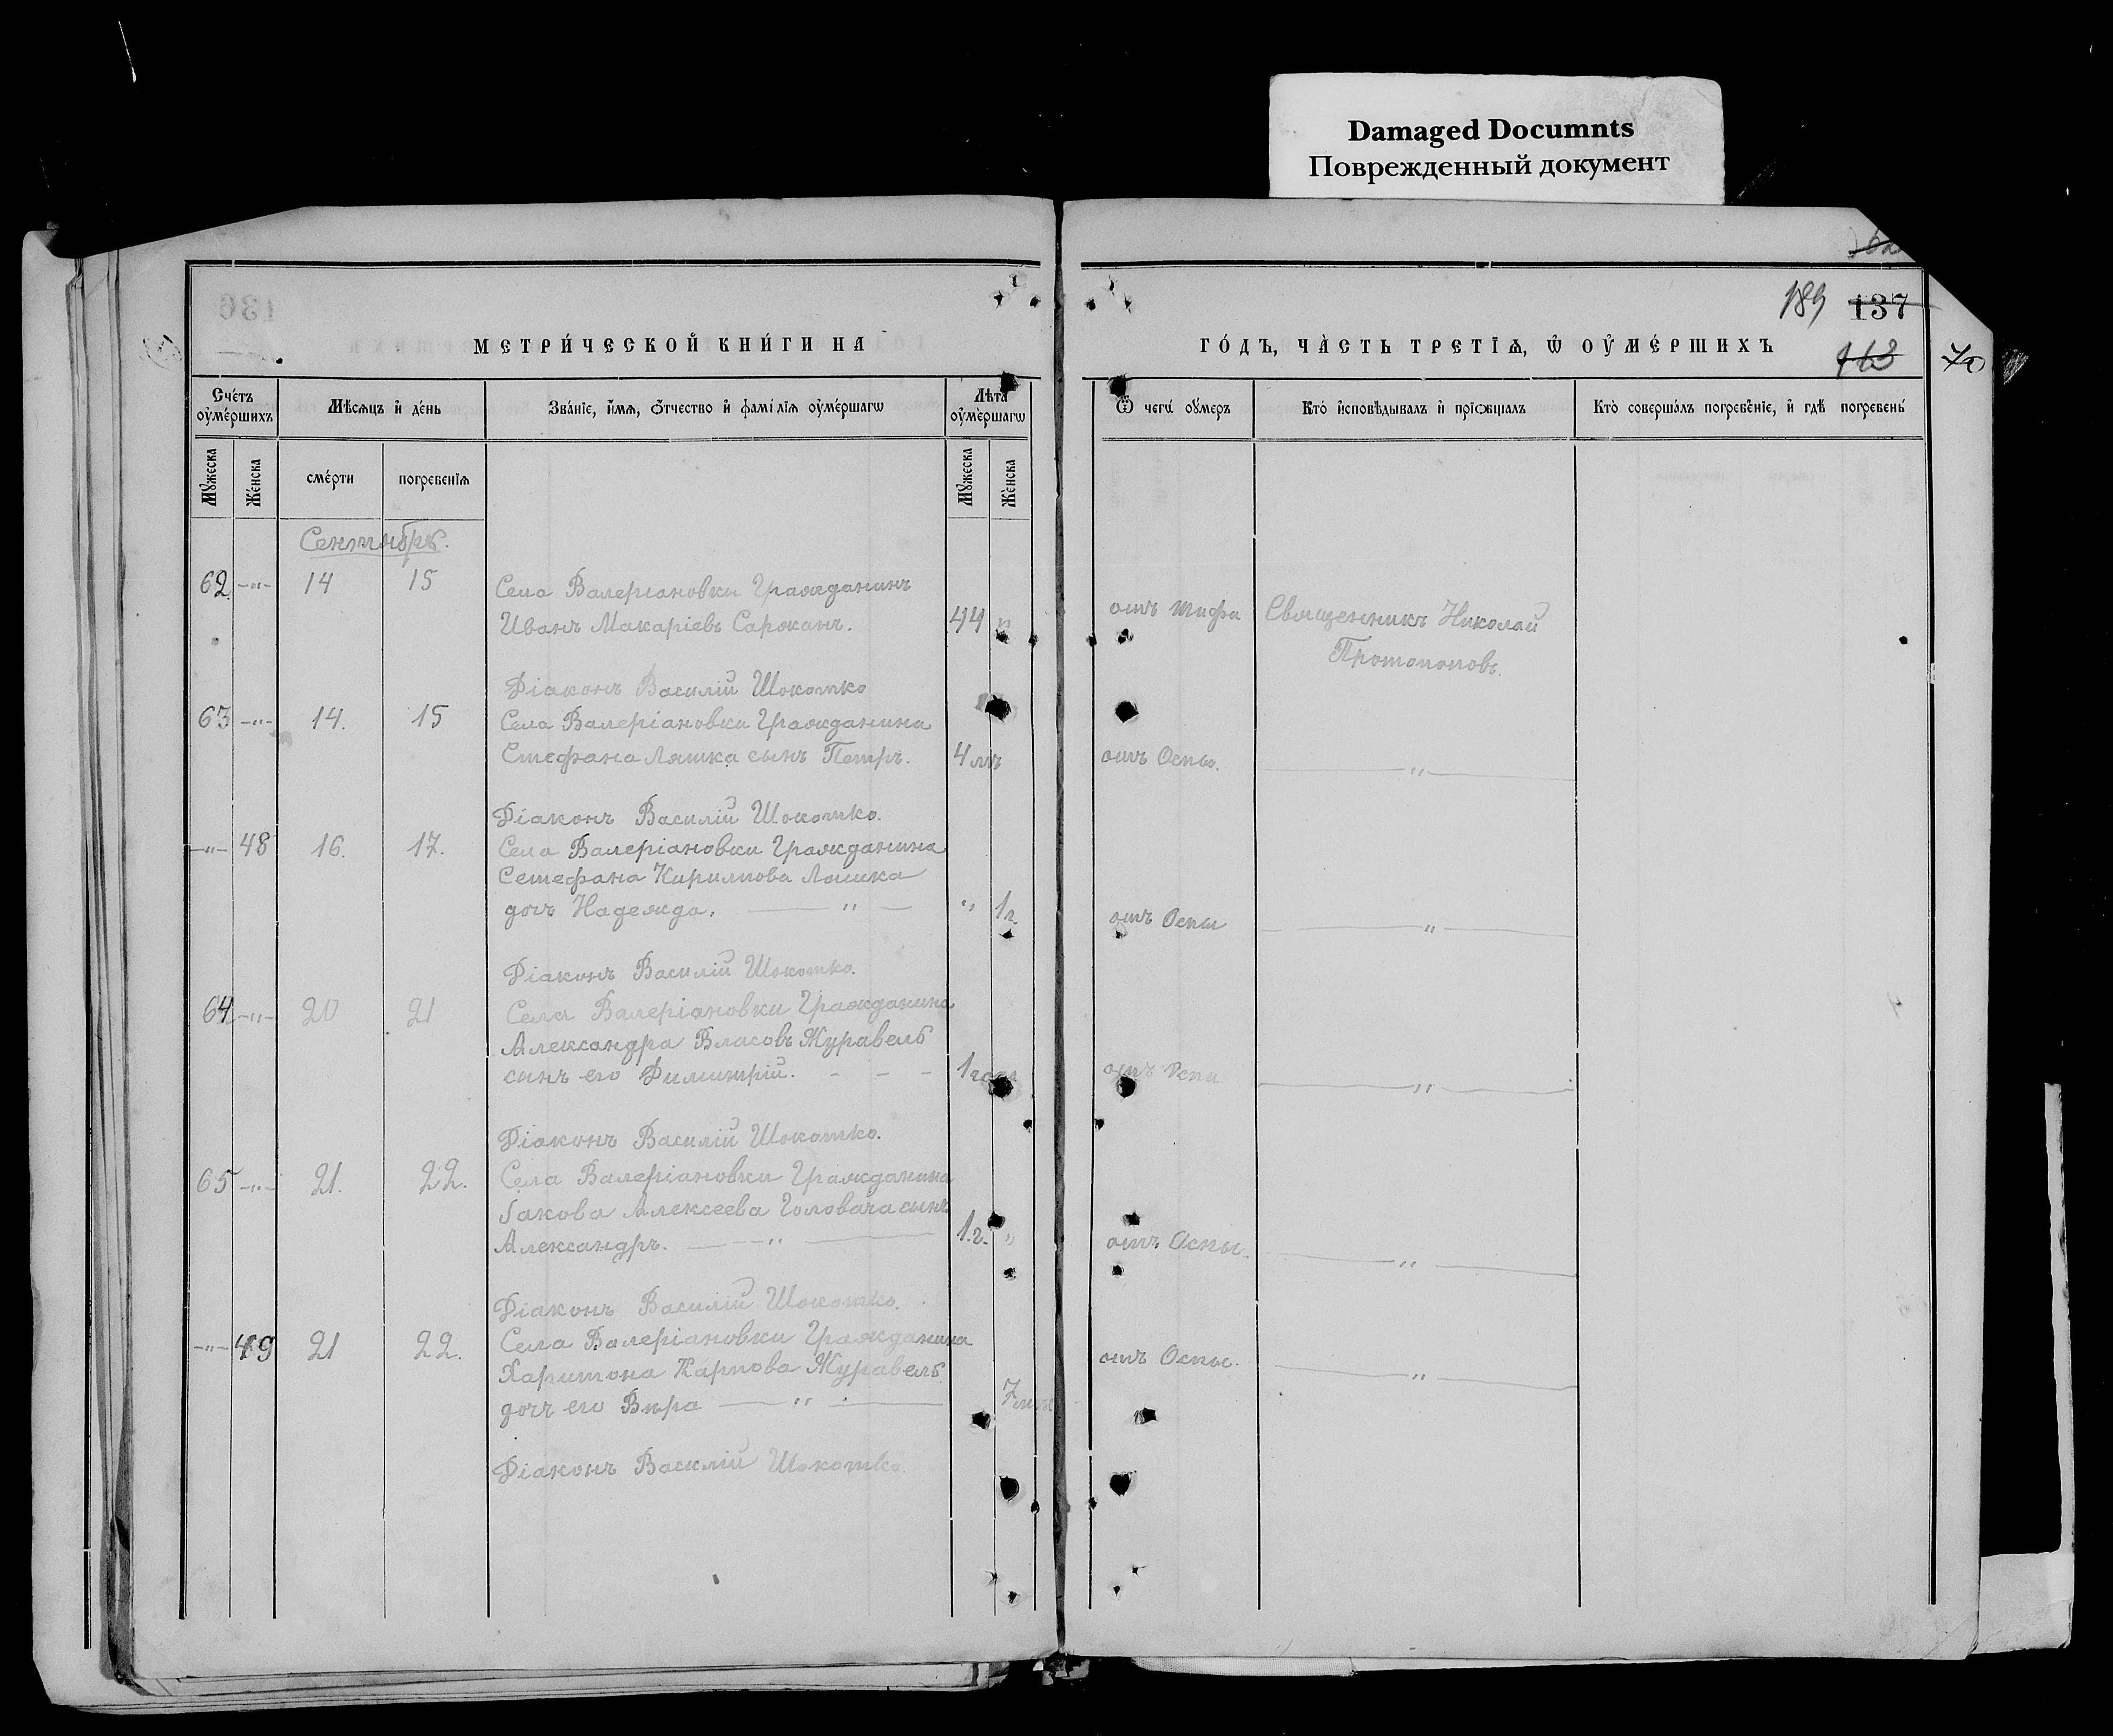 Damaged Documnts
Поврежденный документ
189 137
163 70
МЕТРИ́ЧЕСКОЙ КНИ́ГИ НА
ГО́ДЪ, ЧА̀СТЬ ТРЕТІѦ, Ѡ ОУ҆МЕ́РШИХЪ
Сче́тъ оу҆ме́ршихъ
Мѣсѧцъ и҆ де́нь
Зва́нїе, и҆́мѧ, ѻ҆́тчество и҆ фамі́лїѧ оу҆ме́ршагѡ
Лѣта оу҆ме́ршагѡ
Ѿ чегѡ̀ оу҆́меръ
Кто̀ и҆сповѣ́дывалъ и҆ прїѻбща́лъ
Кто̀ соверша́лъ погребе́нїе, и҆ гдѣ̀ погребены̀
Мꙋ́жеска
Же́нска
сме́рти
погребе́нїѧ
Мꙋ́жеска
Же́нска
Сентябрь.
62 —"— 14 15 Села Валеріановки Гражданинъ
Иванъ Макаріевъ Саржанъ. 44 отъ тифа Священникъ Николай
Протопоповъ.
Діаконъ Василій Шокотко
63 —"— 14. 15 Села Валеріановки Гражданина
Стефана Ляшка сынъ Петръ. 4 лѣтъ отъ Оспы. —"—
Діаконъ Василій Шокотко.
—"— 48 16. 17. Села Валеріановки Гражданина
Сетефана Кирилова Ляшка
дочь Надежда. —"— " 1 г. отъ Оспы —"—
Діаконъ Василій Шокотко.
64 —"— 20 21 Села Валеріановки Гражданина
Александра Власовъ Журавель
сынъ его Димитрій. - - - 1 года отъ Оспы —"—
Діаконъ Василій Шокотко.
65 —"— 21. 22. Села Валеріановки Гражданина
Іакова Алексеева Головача сынъ
Александръ. —"— 1 г. " отъ Оспы. —"—
Діаконъ Василій Шокотко.
—"— 49 21 22. Села Валеріановки Гражданина
Харитона Карпова Журавель отъ Оспы. —"—
дочь его Вѣра —"— 7
Діаконъ Василій Шокотко.